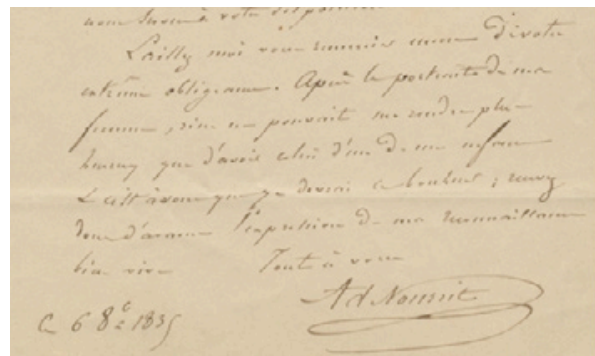 nous serons à votre disposition
Laissez moi vous remercier encore de votre
extrême obligeance. Après le portrait de ma
femme, rien ne pouvait me rendre plus
heureux que d'avoir celui d'un de mes enfans
c'est à vous que je devrai ce bonheur ; recevez
donc d'avance l'expression de ma reconnaissance
bien vive Tout à vous
Ad Nourrit
Ce 6 8bre 1835